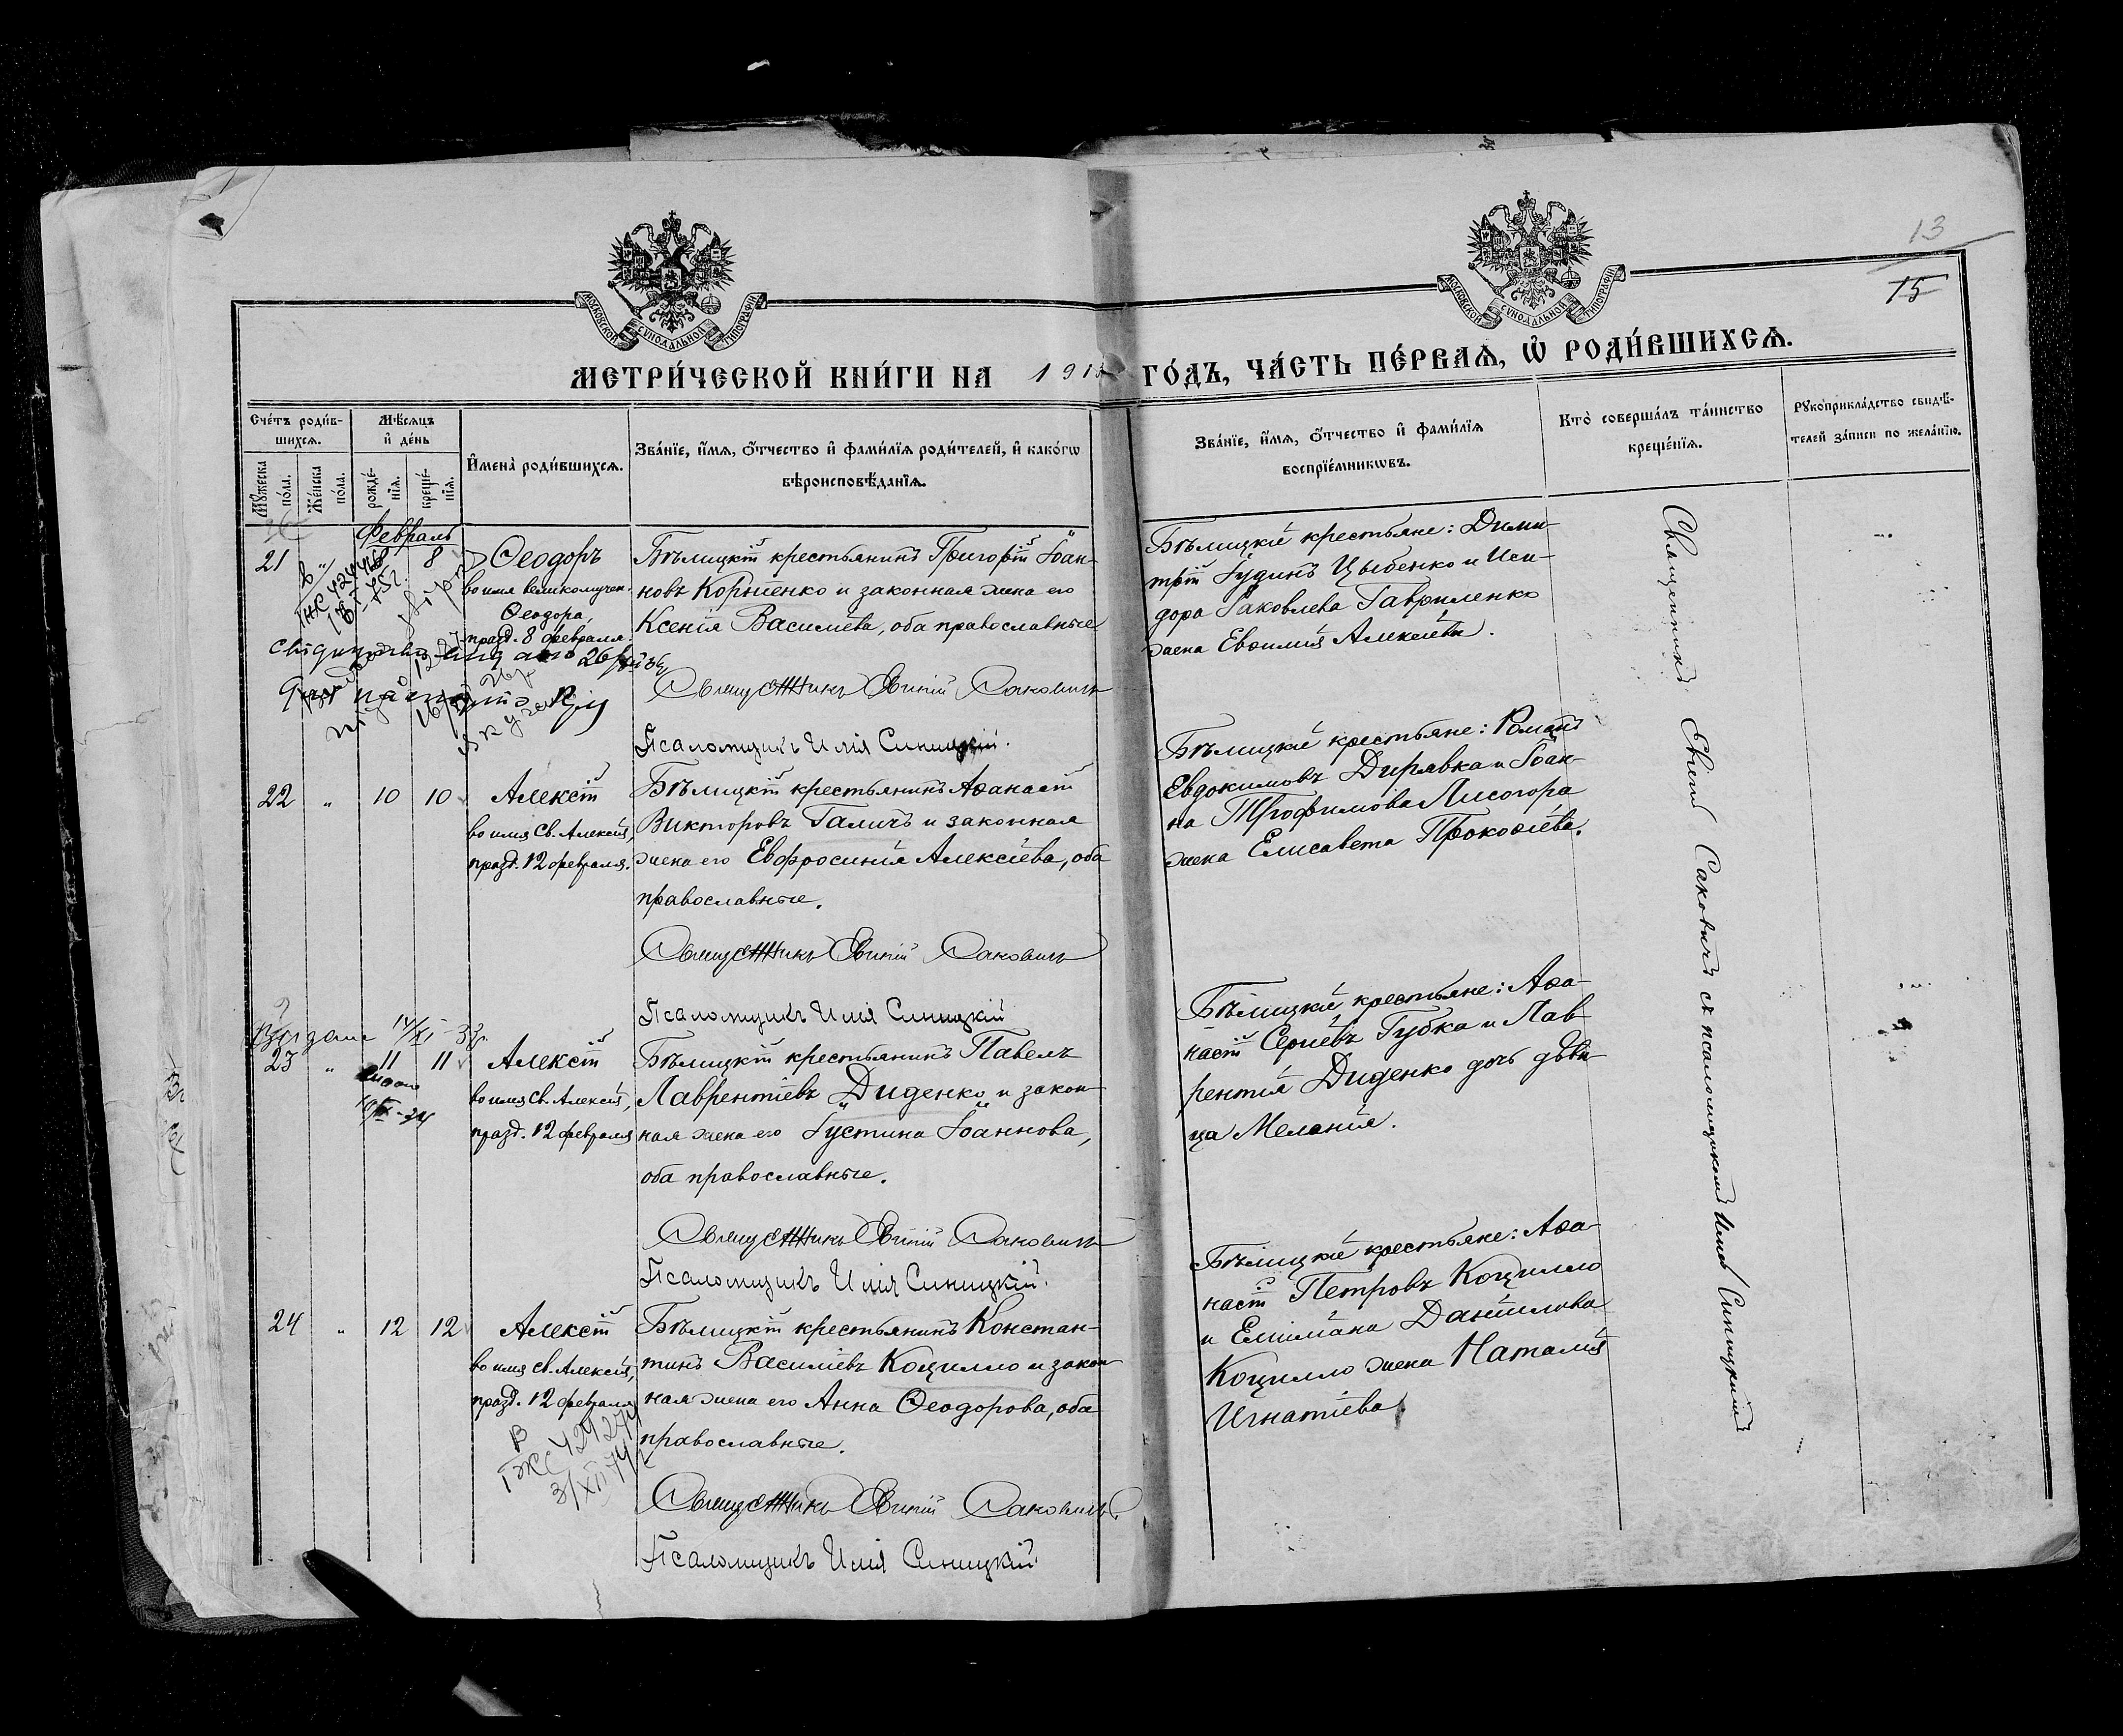 13
15
МОСКОВСКОЙ СѴНОДАЛЬНОЙ ТИПОГРАФІИ
МОСКОВСКОЙ СѴНОДАЛЬНОЙ ТИПОГРАФІИ
МЕТРИ́ЧЕСКОЙ КНИ́ГИ НА 191 ГО́ДЪ, ЧА́СТЬ ПЕ́РВАѦ, Ѽ РОДИ́ВШИХСѦ.
Сче́тъ роди́в-
шихсѧ.
Мѣ́сѧцъ
и҆ де́нь
Мꙋ́жеска по́ла.
Же́нска по́ла.
рожде́-
нїѧ.
креще́-
нїѧ.
И҆мена̀ роди́вшихсѧ.
Зва́нїе, и҆́мѧ, ѻ҆́тчество и҆ фами́лїѧ роди́телей, и҆ како́гѡ
вѣроисповѣ́данїѧ.
Зва́нїе, и҆́мѧ, ѻ҆́тчество и҆ фами́лїѧ
воспрїе́мникѡвъ.
Кто̀ соверша́лъ та́инство
креще́нїѧ.
Рꙋкоприкла́дство свидѣ́-
телей за́писи по жела́нїю.
Февраль
21 " 8
Ѳеодоръ
во имя великомучен.
Ѳеодора,
празд. 8 февраля.
Бѣлицкій крестьянинъ Григорій Іоан-
новъ Корніенко и законная жена его
Ксенія Василіева, оба православные
Священникъ Евѳимій Саковичъ
Псаломщикъ Илія Синицкій.
Бѣлицкіе крестьяне: Дими-
трій Іудинъ Цыбенко и Иси-
дора Іаковлева Гавриленко
жена Евѳимія Алексіева.
22 " 10 10
Алексій
во имя Св. Алексія,
празд. 12 февраля.
Бѣлицкій крестьянинъ Аѳанасій
Викторовъ Галичъ и законная
жена его Евфросинія Алексіева, оба
православные.
Священникъ Евѳимій Саковичъ
Псаломщикъ Илія Синицкій
Бѣлицкіе крестьяне: Романъ
Евдокимовъ Дирявка и Іоан-
на Трофимова Лисогора
жена Елисавета Прокофіева.
23 " 11 11
Алексій
во имя Св. Алексія,
празд. 12 февраля
Бѣлицкій крестьянинъ Павелъ
Лаврентіевъ Диденко и закон-
ная жена его Іустина Іоаннова,
оба православные.
Священникъ Евѳимій Саковичъ
Псаломщикъ Илія Синицкій.
Бѣлицкіе крестьяне: Аѳа-
насій Сергіевъ Губка и Лав-
рентія Диденко дочь дѣви-
ца Меланія.
24 " 12 12
Алексій
во имя Св. Алексія,
празд. 12 февраля
В
ГЖС 429274
3/XII 74 г
Бѣлицкій крестьянинъ Констан-
тинъ Василіевъ Коцилло и закон-
ная жена его Анна Ѳеодорова, оба
православные.
Священникъ Евѳимій Саковичъ.
Псаломщикъ Илія Синицкій
Бѣлицкіе крестьяне: Аѳа-
насій Петровъ Коцилло
и Емиліана Даніилова
Коцилло жена Наталія
Игнатіева
Священникъ Евѳимій Саковичъ съ псаломщикомъ Иліею Синицкимъ